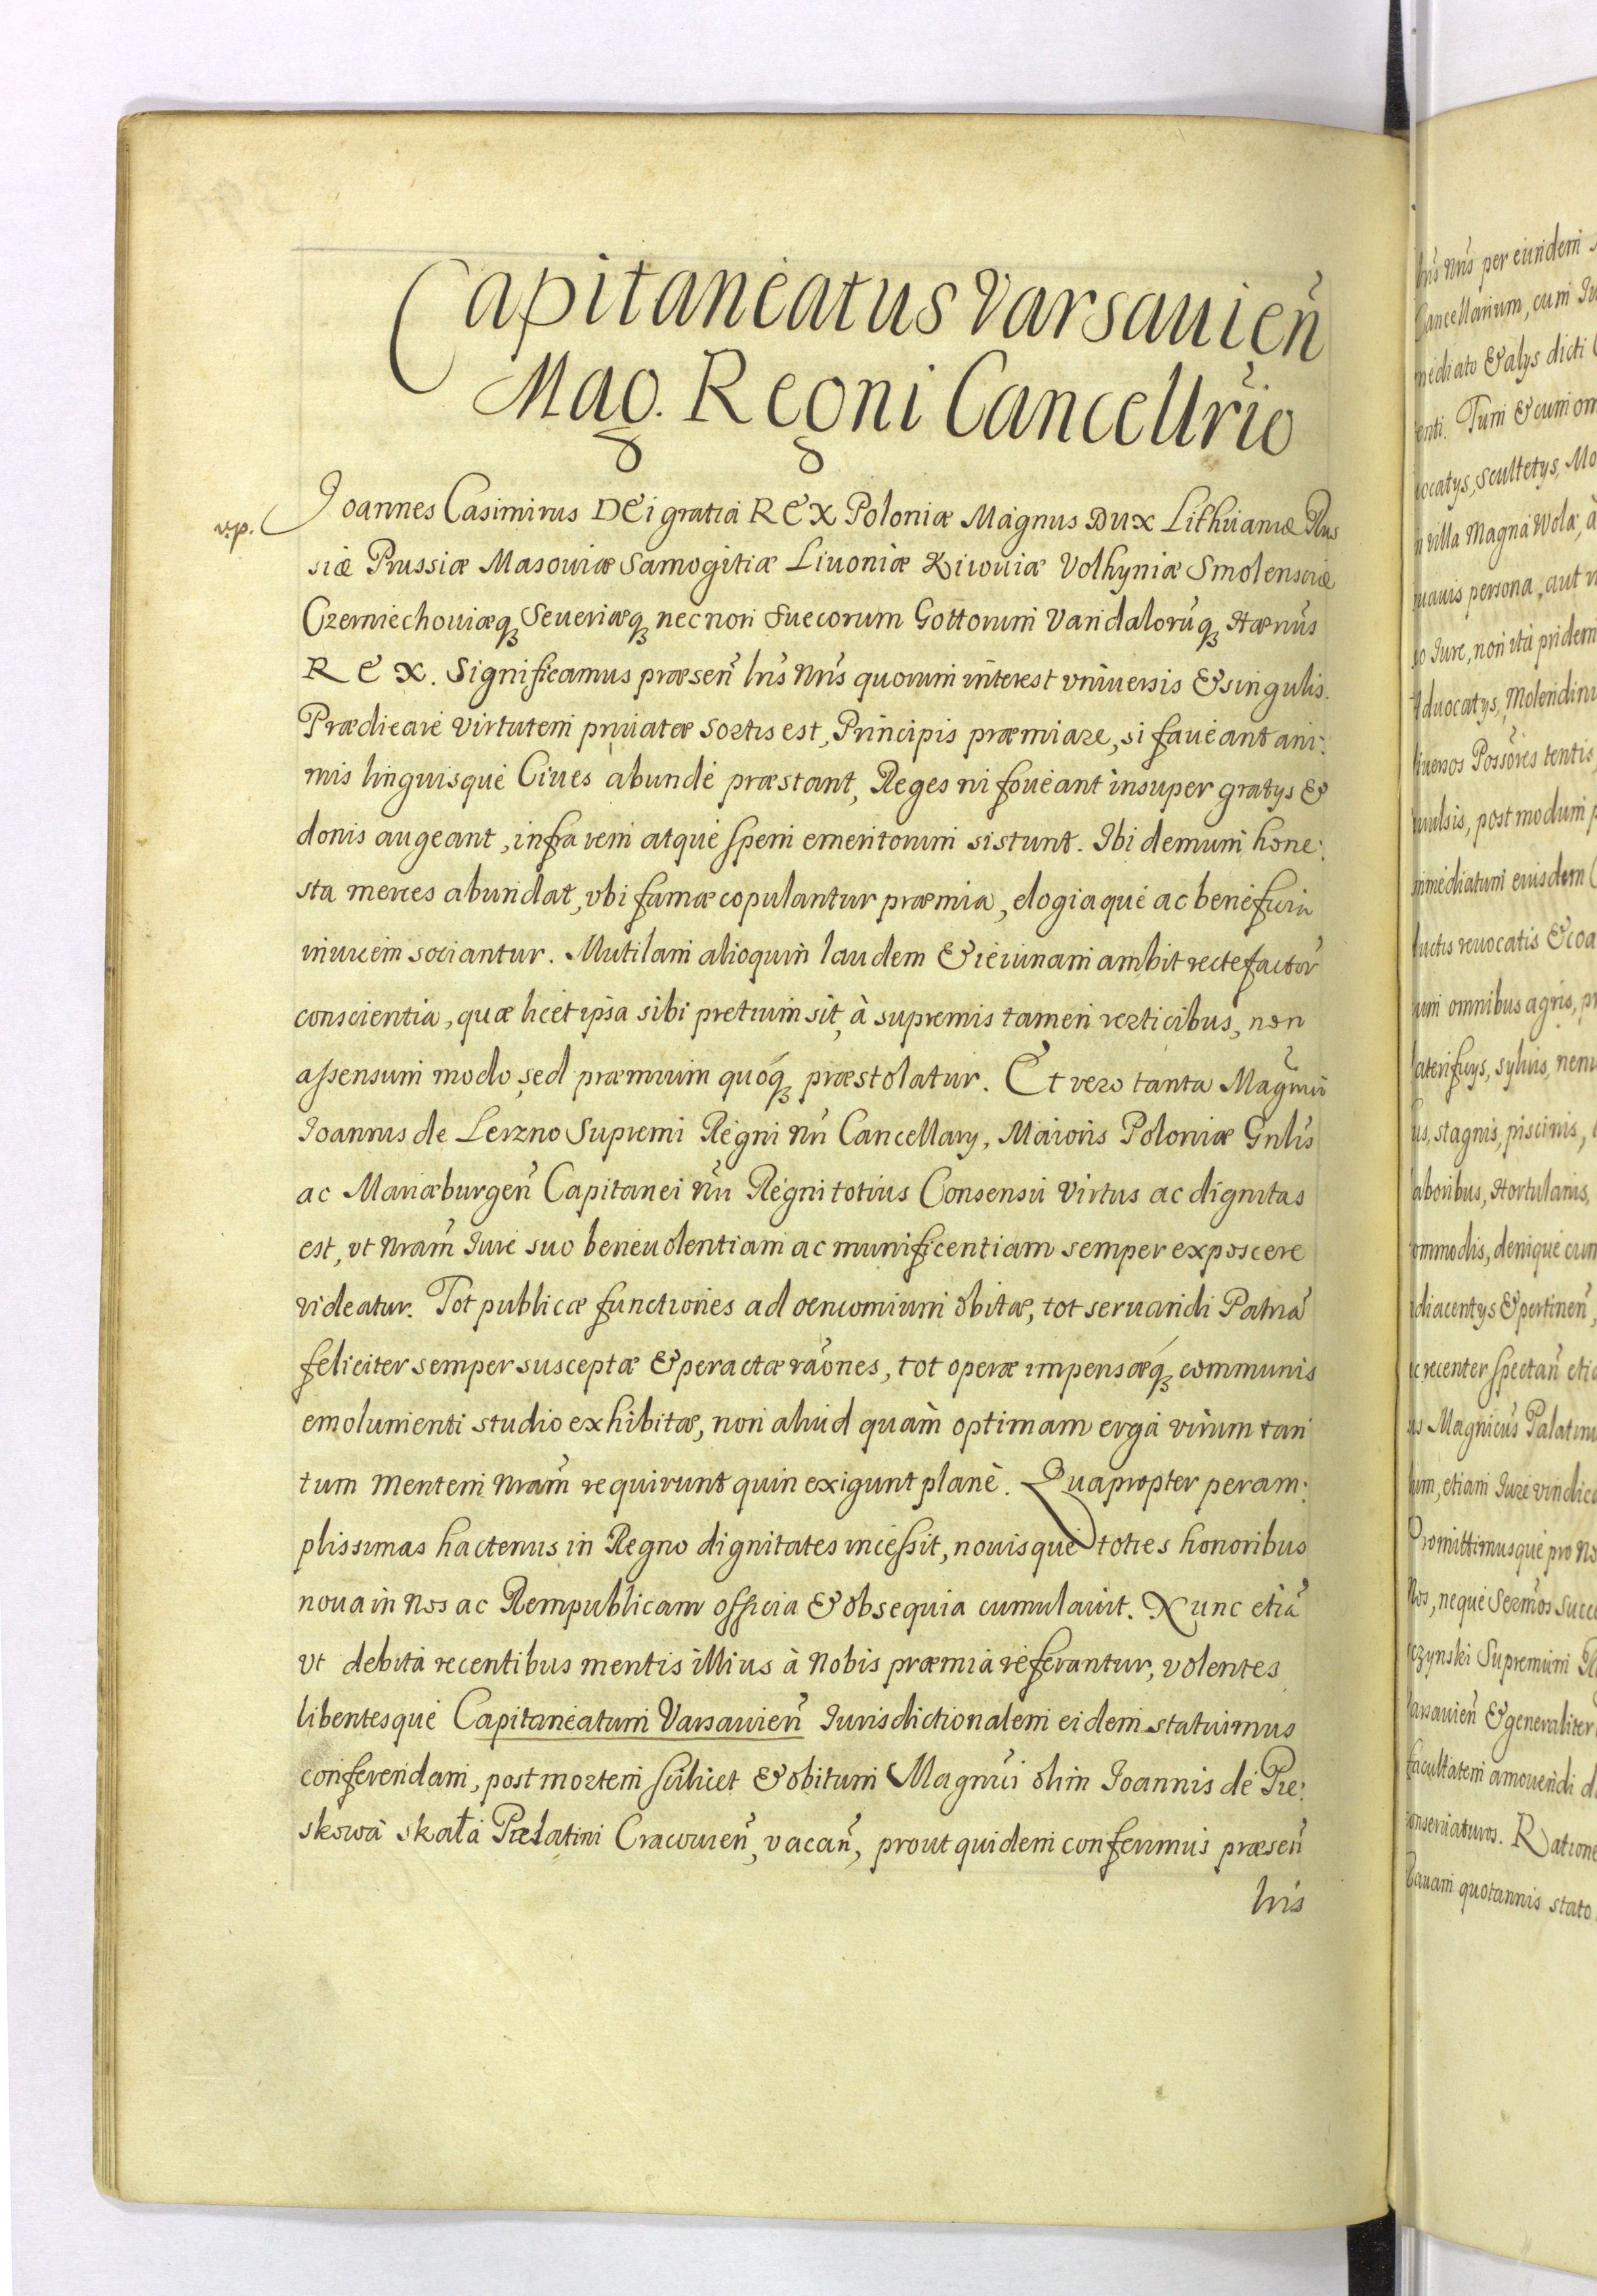 Capitaneatus Varsauień
Mag. Regni Cancellrio
v.p.
Joannes Casimirus DEi gratia REX Poloniæ Magnus Dux Lithuaniæ Rus
siæ Prussiæ Masouiæ Samogitiæ Liuoniæ Kiiouiæ Volhyniæ Smolensciæ
Czerniechouiæq̃ Seueriæq̃ necnon Suecorum Gottorum Vandalorũq̃ Hærius
REX. Significamus præseñ lris Nris quorum interest vniuersis & singulis.
Prædicare virtutem priuatæ sortis est, Principis præmiare, si faueant ani:
mis linguisque Ciues abunde præstant, Reges ni foueant insuper gratys &
donis augeant, infra rem atque spem emeritorum sistunt. Ibi demum hone:
sta merces abundat, vbi famæ copulantur præmia, elogiaque ac beneficia
inuicem sociantur. Mutilam alioquin laudem & ieiunam ambit recte factor̃
conscientia, quæ licet ipsa sibi pretium sit, à supremis tamen verticibus, non
assensum modo, sed præmium quoq̃ præstolatur. Et vero tanta Magñici
Joannis de Leszno Supremi Regni Nri Cancellary, Maioris Poloniæ Gnlis
ac Mariæburgeñ Capitanei Nri Regni totius Consensu virtus ac dignitas
est, vt Nram̃ Iure suo beneuolentiam ac munificentiam semper exposcere
videatur. Tot publicæ functiones ad oencomium obitæ, tot seruandi Patriã
feliciter semper susceptæ & peractæ raõnes, tot operæ impensæq̃ communis
emolumenti studio exhibitæ, non aliud quàm optimam erga virum tan
tum mentem Nram̃ requirunt quin exigunt planè. Quapropter peram:
plissimas hactenus in Regno dignitates incessit, nouisque toties honoribus
noua in Nos ac Rempublicam officia & obsequia cumulauit. Nunc etiã
vt debita recentibus meritis illius à Nobis præmia referantur, volentes
libentesque Capitaneatum Varsauień Iurisdictionalem eidem statuimus
conferendam, post mortem scilicet & obitum Magnici olim Joannis de Pie:
skowa skała Palatini Cracouień, vacañ, prout quidem conferimus præseñ
lris
lris Nris per eundem
Cancellarium, cum Iu
mediato & alys dicti
enti. Tum & cum om
uocatys, scultetys, Mo
n villa Magna Wola, à
uauis persona, aut
o Iure, non ita pridem
Aduocatys, Molendini
iuersos Possõres tentis
uulsis, postmodum p
mmediatum eiusdem
luctis reuocatis & coa
um omnibus agris, pr
laterificys, syluis, nem
us, stagnis, piscinis,
aboribus, Hortulanis,
ommodis, denique cum
diacentys & pertineñ,
c recenter spectañ etia
us Magnicus Palatinu
lum, etiam Iure vindica
Promittimusque pro No
Nos, neque Sermõs Succe
czynski Supremum R
arsauień & generaliter
facultatem amouendi d
conseruaturos. Ratione
Rauam quotannis stato